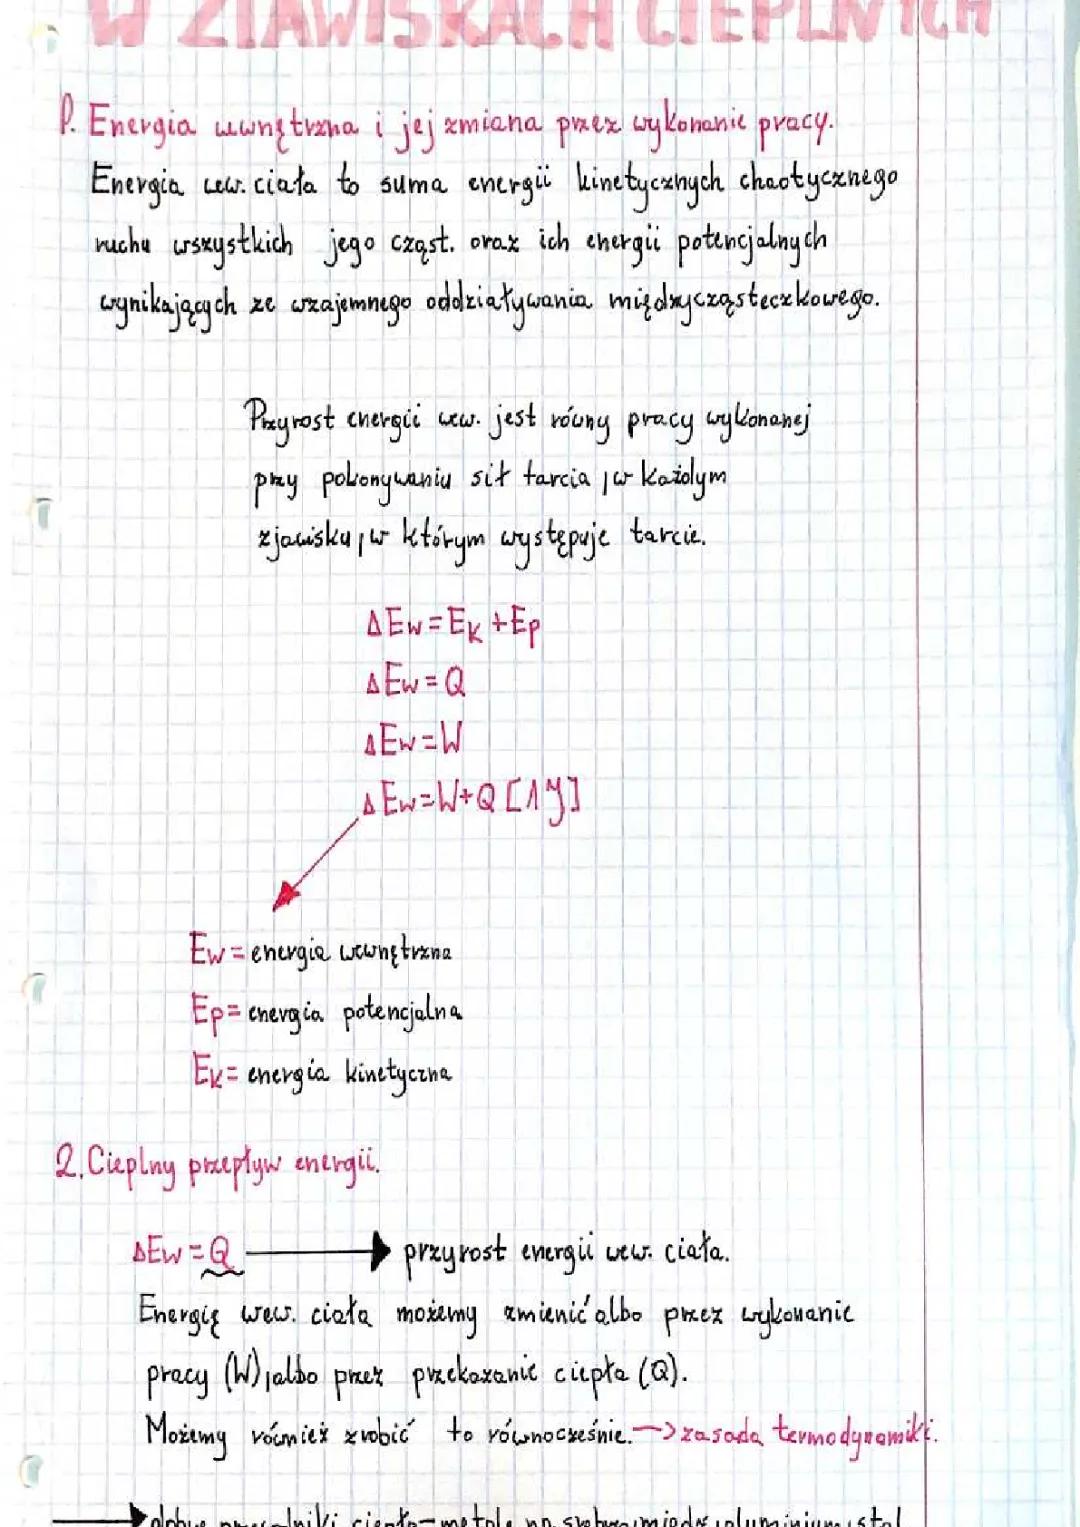 W ZJAWISKACH CIEPLNYCH
1. Energia wewnętrzna i jej zmiana przez wykonanie pracy.
Energia wew. ciała to suma energii kinetycznych chaotycznego
ruchu wszystkich jego cząst. oraz ich energii potencjalnych
wynikających ze wzajemnego oddziaływania międzycząsteczkowego.
Przyrost energii wew. jest równy pracy wykonanej
przy pokonywaniu sił tarcia, w każdym
zjawisku, w którym występuje tarcie.
ΔEw=Ek+Ep
ΔEw=Q
ΔEw=W
ΔEw=W+Q [1J]
Ew=energia wewnętrzna
Ep=energia potencjalna
Ek=energia kinetyczna
2. Cieplny przepływ energii.
ΔEw=Q → przyrost energii wew. ciała.
Energię wew. ciała możemy zmienić albo przez wykonanie
pracy (W), albo przez przekazanie ciepła (Q).
Możemy również zrobić to równocześnie. → zasada termodynamiki.
→ dobre przewodniki ciepła-metale np. srebro, miedź, aluminium, stal